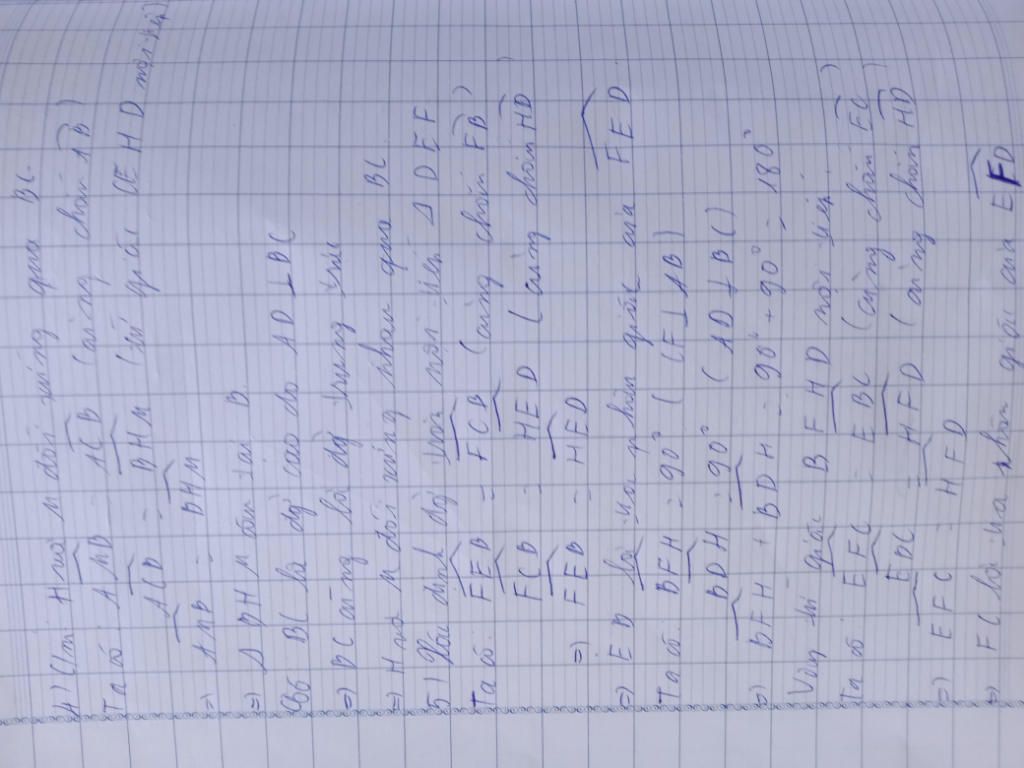 4) C/m H và M đối xứng qua BC.
Ta có AMB = ACB (cùng chắn AB)
ACB = BHM (tứ giác CEHD nội tiếp)
=> AMB = BHM
=> Δ BHM cân tại B
BC là đg cao do AD ⊥ BC
=> BC cũng là đg trung trực
=> H và M đối xứng nhau qua BC
5) Xác định đg tròn nội tiếp Δ DEF
Ta có FEB = FCB (cùng chắn FB)
FCB = HED (cùng chắn HD
=> FEB = HED
=> EB là tia phân giác của FED
Ta có BFH = 90° (CF ⊥ AB)
BDH = 90° (AD ⊥ BC)
=> BFH + BDH = 90° + 90° = 180°
Vậy tứ giác BFHD nội tiếp.
Ta có EFC = EBC (cùng chắn EC)
EBC = HFD (cùng chắn HD)
=> EFC = HFD
=> FC là tia phân giác của EFD